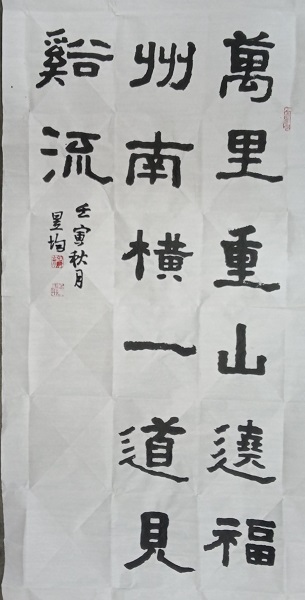 萬里重山遶福
州南橫一道見
谿流
壬寅秋月
昱均